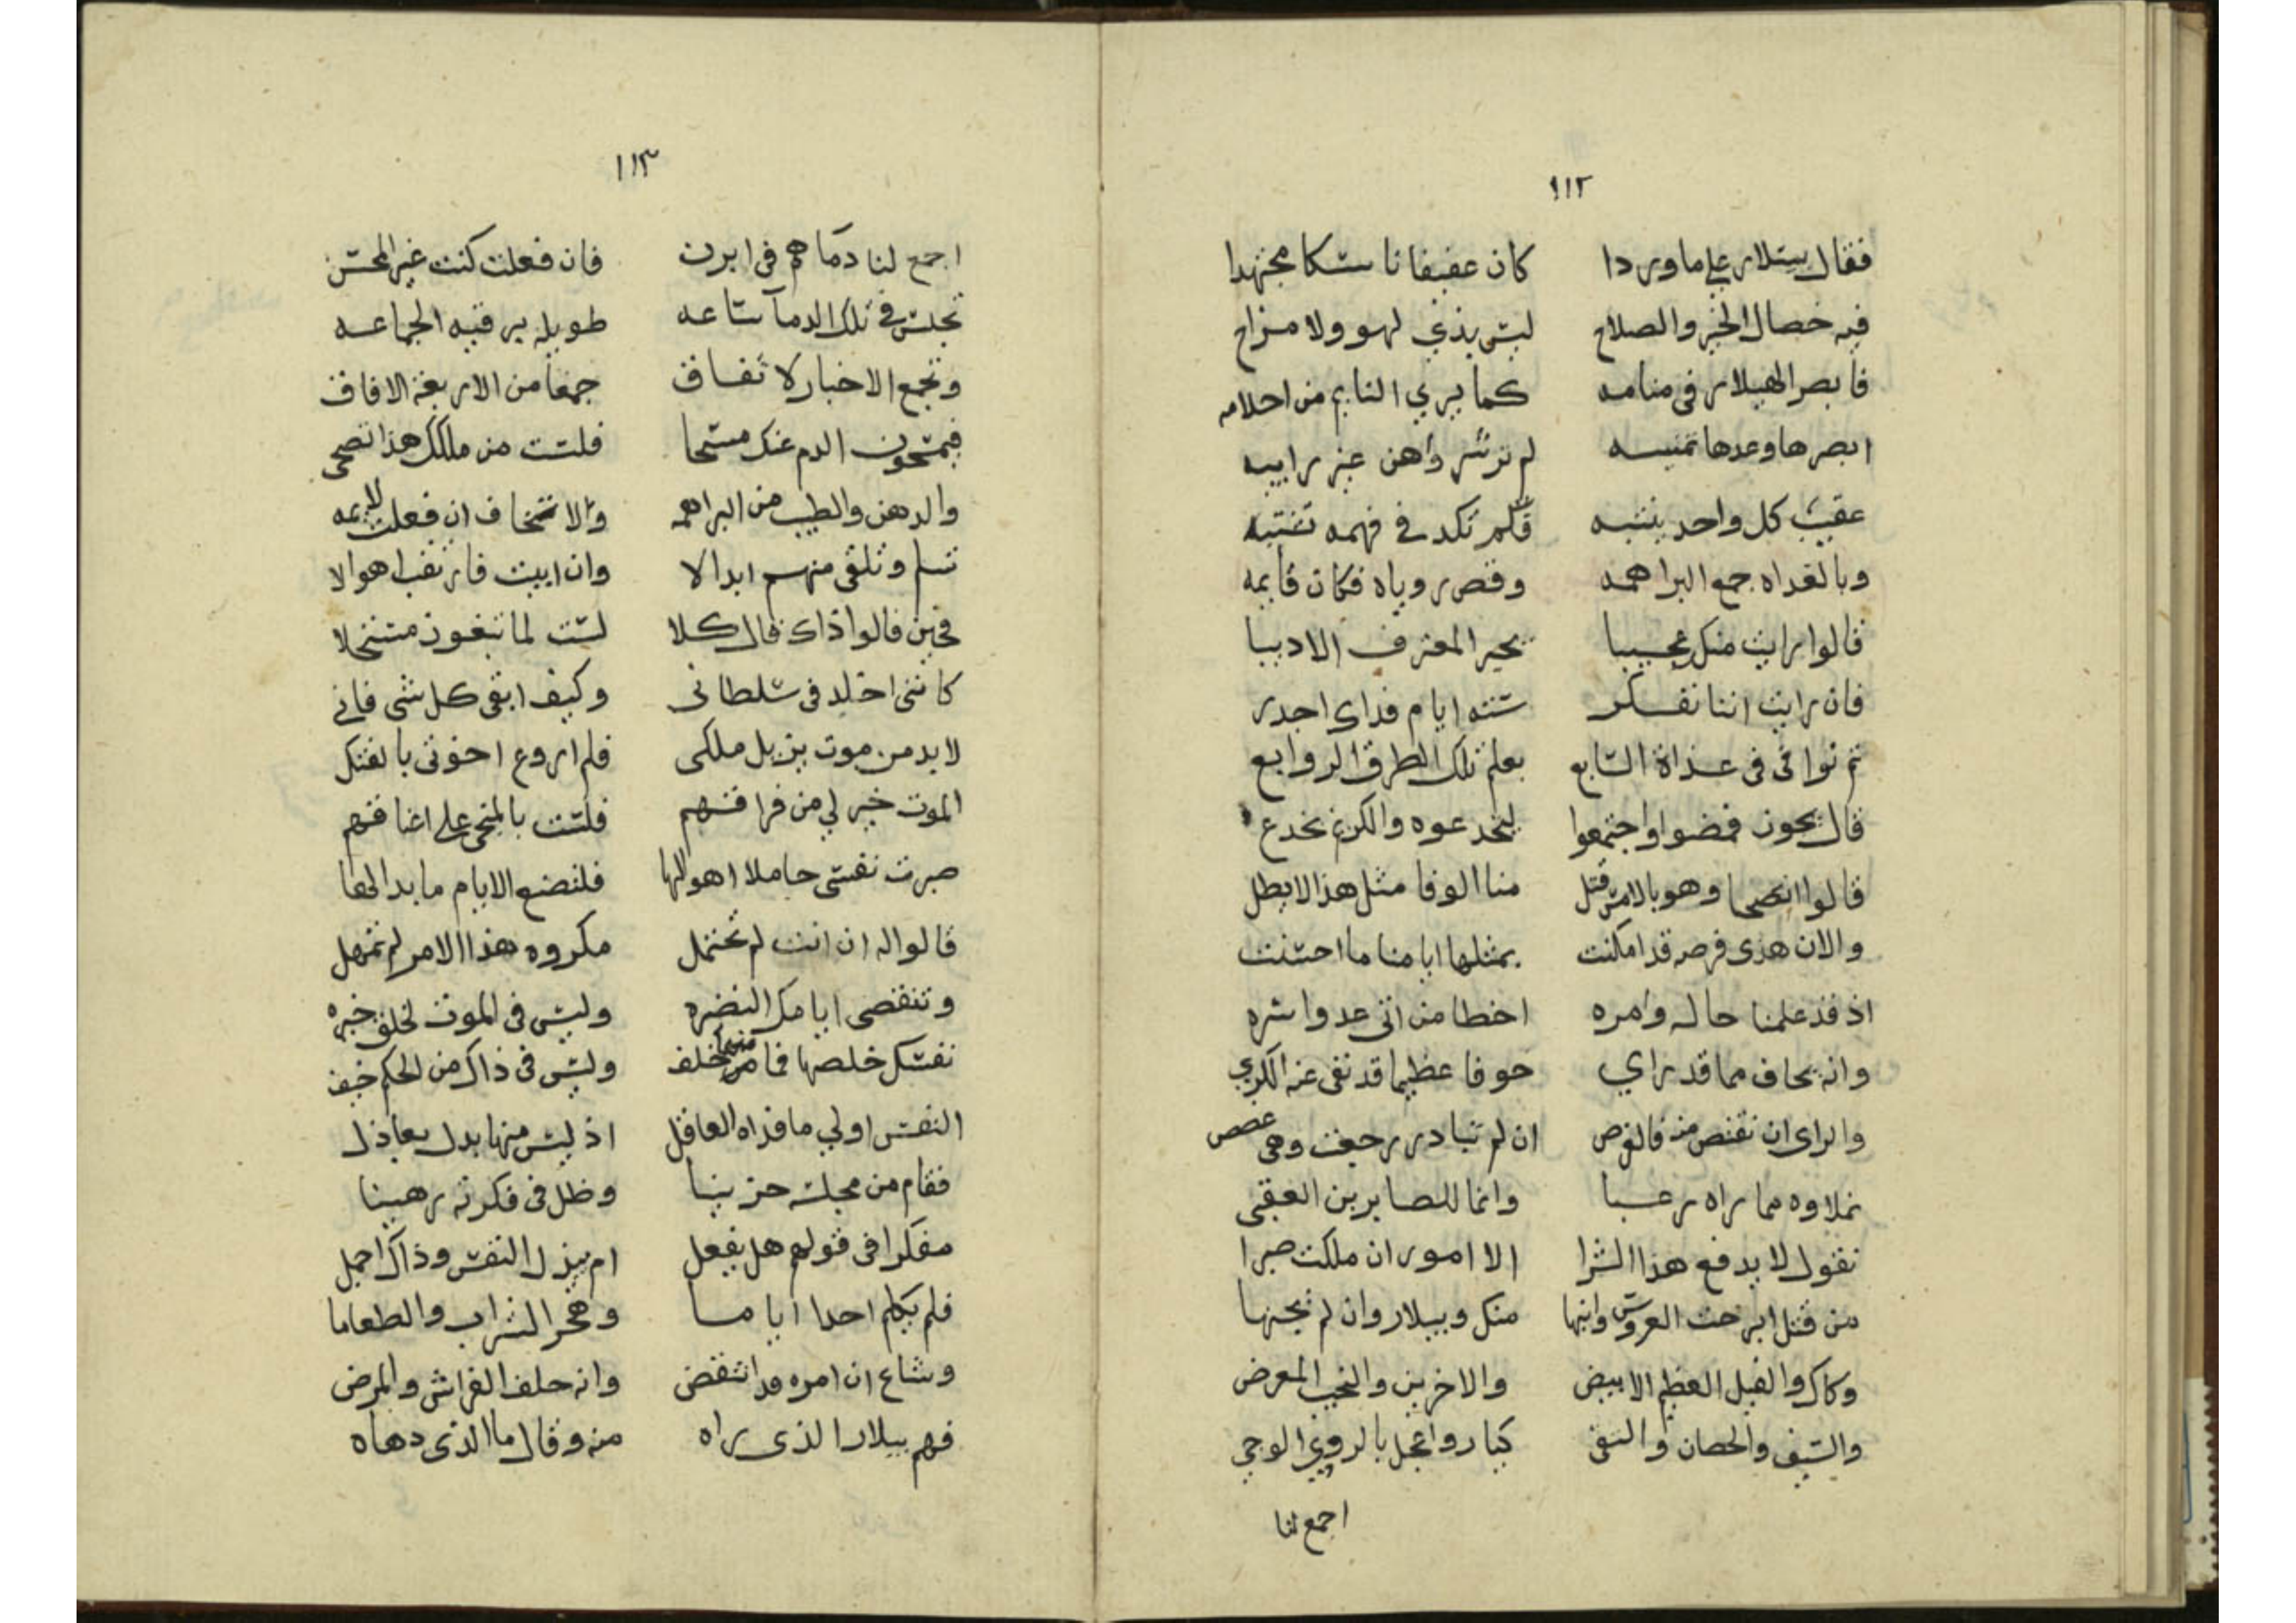 ١١٢
فقال بيتلار على ما وردا كان عفيفا ناسكا مجتهدا
فيه خصال الخير والصلاح ليس بذي لهو ولا مزاح
فابصر الهيلار في منامه كما يري النايم من احلامه
ابصرها وعدها ثمنيه لم تر شر واهن غير رابيه
عقيب كل واحد ينتبه فلم تكد في فهمه تشتبه
وبالغداه جمع البراهمه وقص روياه فكان قايمه
قالوا رايت منكرا عجيبا يحير المعترف الاديبا
فان رايت اننا نفكر سته ايام فذاك اجدر
ثم نوافى فى غداة السابع بعلم تلك الطرق الروابع
قال يجوز فمضوا واجتمعوا ليخدعوه والكريم يخدع
قالوا انصحا وهو بالامس قتل منا الوفا مثل هذا لا يطل
والان هذى فرصه قد امكنت بمثلها ايامنا ما احسنت
اذ قد علمنا حاله وامره اخطا من اتى عدوا سره
وانه يخاف مما قد راي خوفا عظيما قد نفى عنه الكري
والراى ان نقتص منه فالفرص ان لم تبادر رجعت وهى غصص
نملاوه مما راه رعبا وانما للصابرين العقبى
نقول لا يدفع هذا الشرا الا امور ان ملكت صبرا
من قتل ابرخت العروس وابنها منك وبيلار وان لم تجنها
وكاك والفيل العظيم الابيض والاخرين والنجيب المعرض
والسيف والحصان والنقى كباروا عجل بالروي الوجي
اجمع لنا
١١٣
اجمع لنا دماهم فى ابزن فان فعلت كنت غير المحسن
تجلس في تلك الدما ساعه طويله يرقيه الجماعه
وتجمع الاخبار لا تفاق جمعا من الاربعة الافاق
فيمسحون الدم عنك مسحا فلست من ملكك هذا تصحى
والدهن والطيب من البراهمه ولا تخاف ان فعلت لايمه
تسلم وتلقى منهم ابدالا وان ابيت فارتقب اهوالا
فحين قالوا ذاك قال كلا لست لما تبغون مستحلا
كاننى اخلد فى سلطانى وكيف ابقى كل شى فاني
لا بد من موت يزيل ملكى فلم اروع اخوتى بالفتك
الموت خير لي من فراقهم فلست بالمنحى على اعناقهم
صبرت نفسى حاملا اهوالها فلتصنع الايام ما بدا لها
قالوا له ان انت لم تحتمل مكروه هذا الامر لم تمهل
وتنقضى ايامك النضره وليس فى الموت لخلق خيره
نفسك خلصها فما منها خلف وليس فى ذاك من الحكم خيف
النفس اولي ما فداه العاقل اذ ليس منها بدل يعادل
فقام من مجلسه حزينا وظل فى فكرته رهينا
مفكرا فى قولهم هل يفعل ام يبذل النفس وذاك اجمل
فلم يكلم احدا اياما وهجر الشراب والطعاما
وشاع ان امره قد انتقض وانه حلف الفراش والمرض
فهم بيلار الذى راه منه وقال ما الذى دهاه